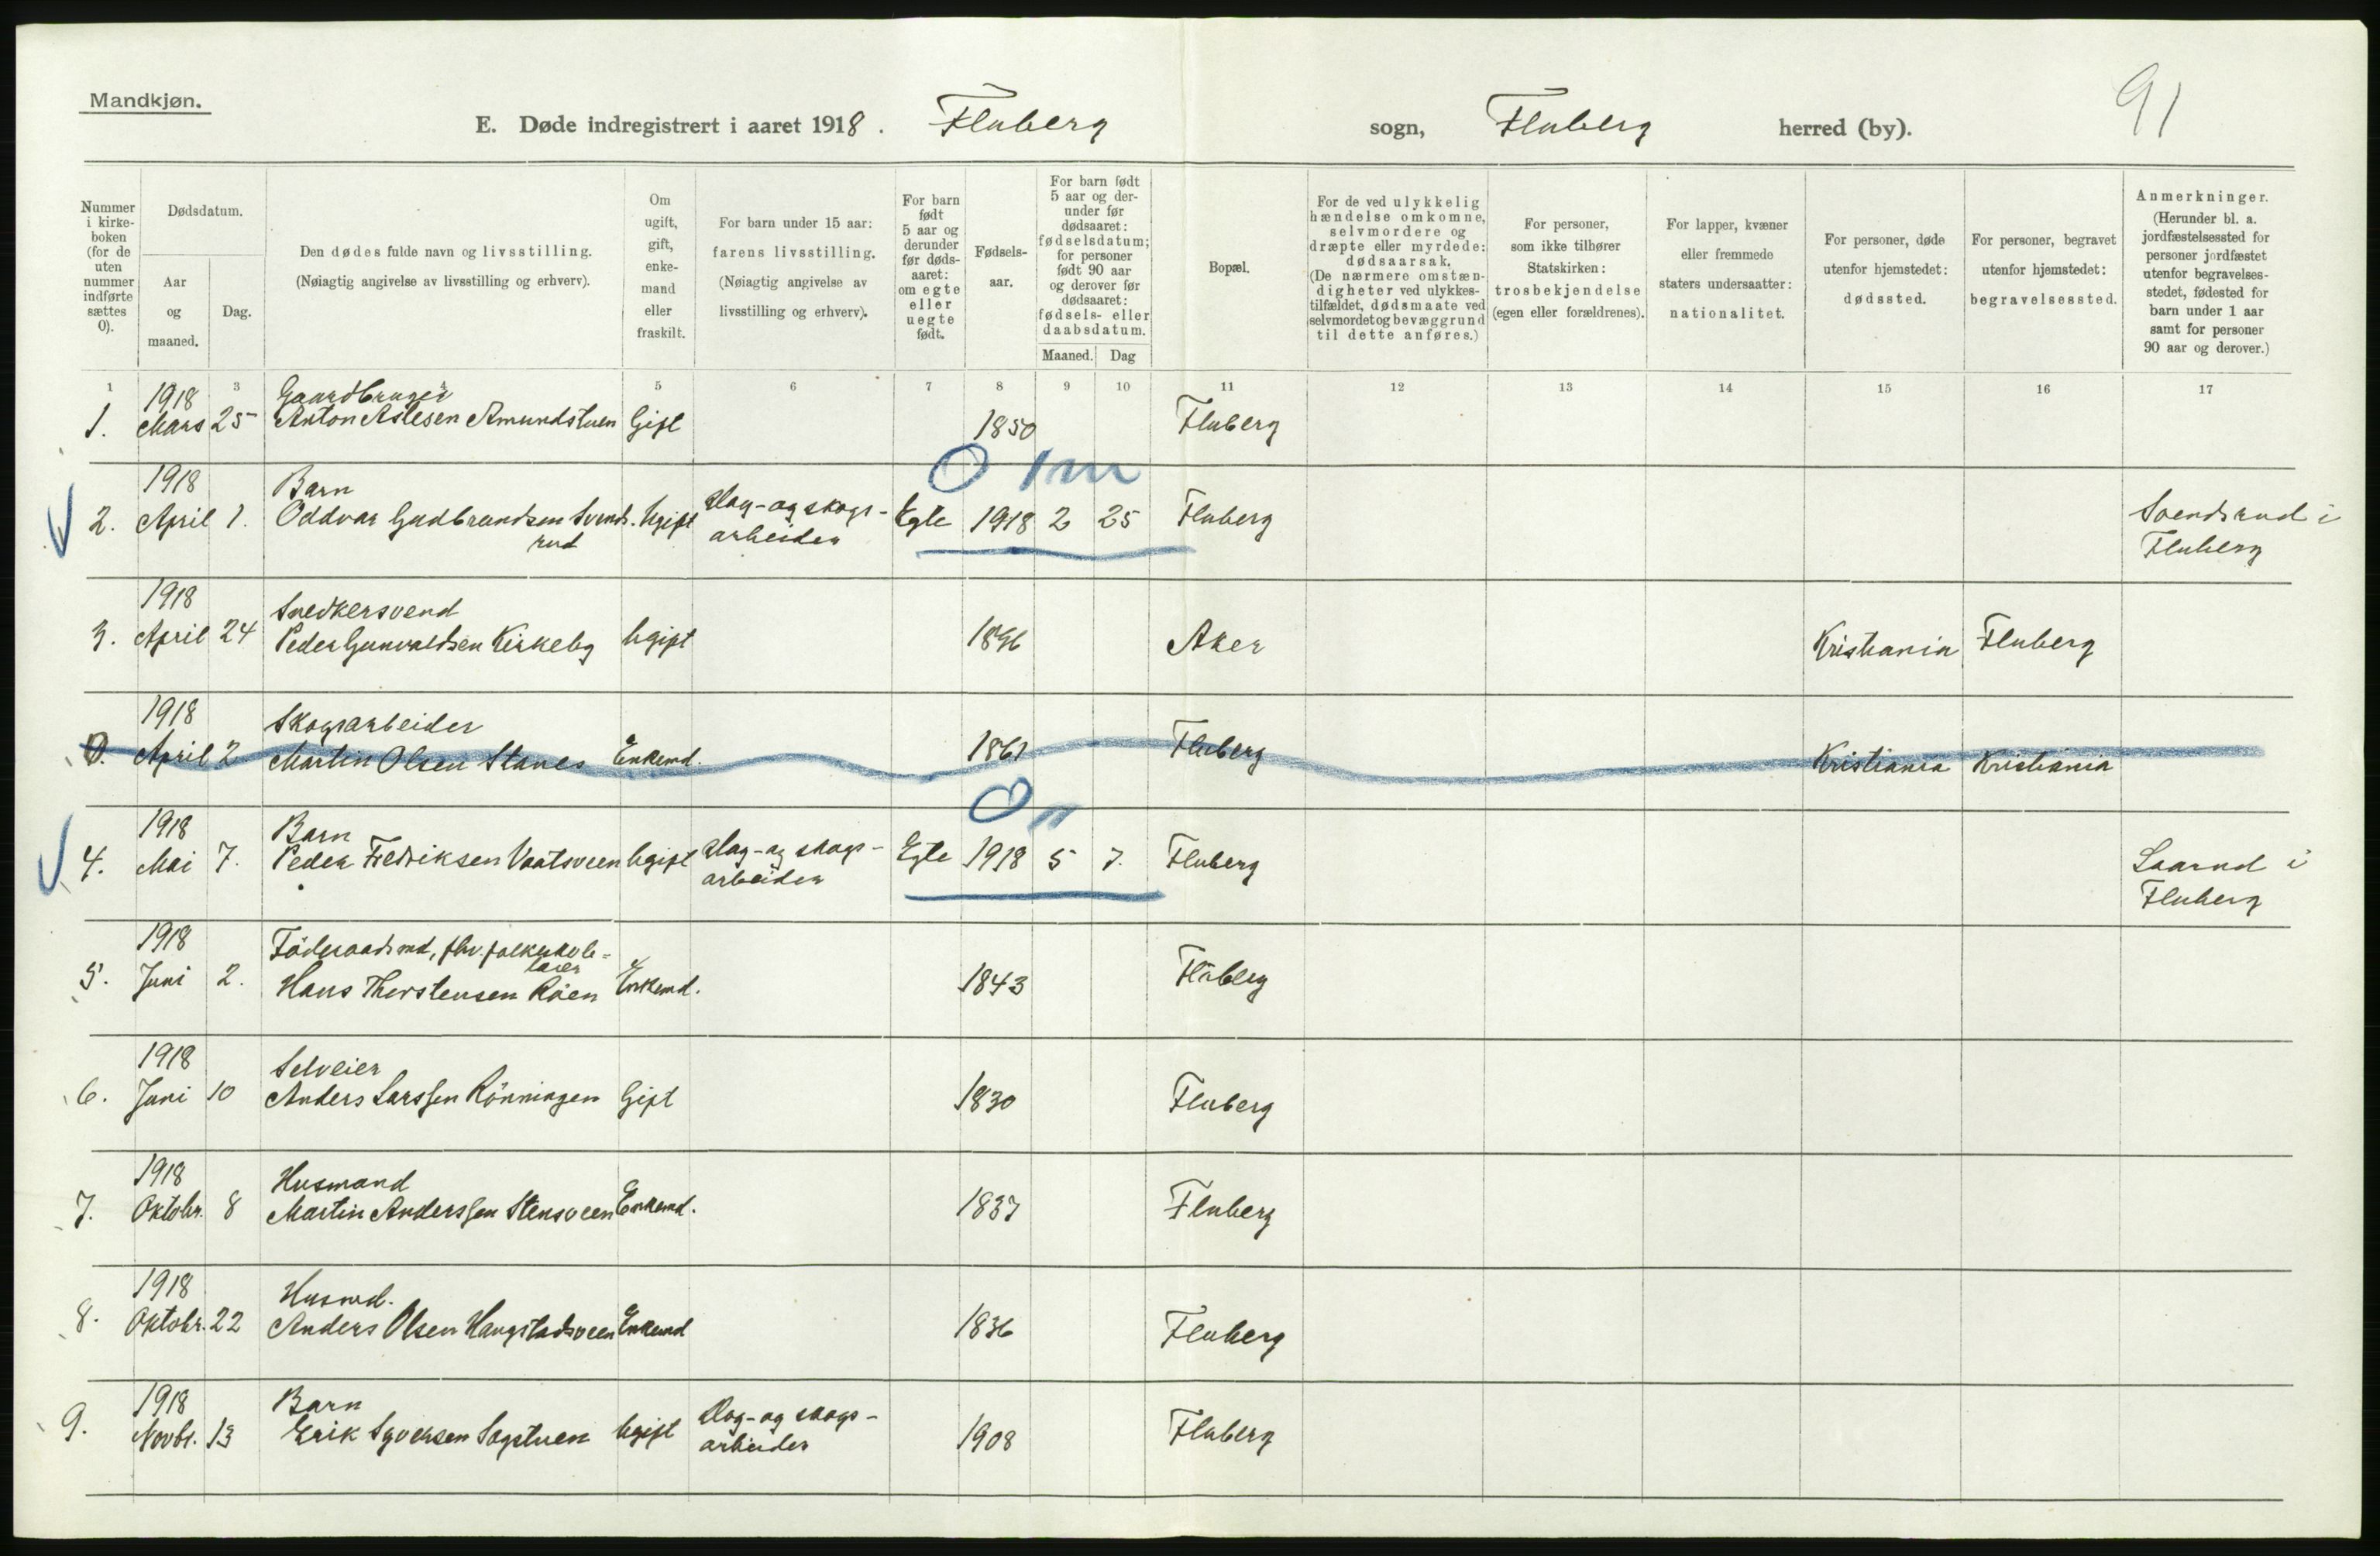 Mandkjøn.
91
E. Døde indregistrert i aaret 1918. Fluberg sogn, Fluberg herred (by).
Nummer i kirke-boken (for de uten nummer indførte sættes 0).
Dødsdatum.
Aar og maaned.
Dag.
Den dødes fulde navn og livsstilling.
(Nøiagtig angivelse av livsstilling og erhverv).
Om ugift, gift, enke-mand eller fraskilt.
For barn under 15 aar: farens livsstilling.
(Nøiagtig angivelse av livsstilling og erhverv).
For barn født 5 aar og derunder før døds-aaret: om egte eller uegte født.
Fødsels-aar.
For barn født 5 aar og der-under før dødsaaret: fødselsdatum; for personer født 90 aar og derover før dødsaaret: fødsels- eller daabsdatum.
Maaned. Dag
Bopæl.
For de ved ulykkelig hændelse omkomne, selvmordere og dræpte eller myrdede: dødsaarsak.
(De nærmere omstæn-digheter ved ulykkes-tilfældet, dødsmaate ved selvmordet og bevæggrund til dette anføres.)
For personer, som ikke tilhører Statskirken: trosbekjendelse (egen eller forældrenes).
For lapper, kvæner eller fremmede staters undersaatter: nationalitet.
For personer, døde utenfor hjemstedet: dødssted.
For personer, begravet utenfor hjemstedet: begravelsessted.
Anmerkninger.
(Herunder bl. a. jordfæstelsessted for personer jordfæstet utenfor begravelses-stedet, fødested for barn under 1 aar samt for personer 90 aar og derover.)
1 3 4 5 6 7 8 9 10 11 12 13 14 15 16 17
1918 Gaardbruger
1. Mars 25 Anton Aslesen Amundstuen Gift 1850 Fluberg
0 1m
1918 Barn
2. April 1. Oddvar Gudbrandsen Svends-rud Ugift Dag- og skogs-arbeider Egte 1918 2 25 Fluberg Svendsrud i Fluberg
1918 Snedkersvend
3. April 24 Peder Gunvaldsen Kirkeby Ugift 1896 Aker Kristiania Fluberg
1918 Skogsarbeider
0. April 2 Martin Olsen Stanes Enkemd. 1861 Fluberg Kristiania Kristiania
0
1918 Barn
4. Mai 7. Peder Fredriksen Vaatsveen Ugift Dag- og skogs-arbeider Egte 1918 5 7. Fluberg Saarud i Fluberg
1918 Föderaadsmd, fhv. folkeskole-lærer
5. Juni 2. Hans Thorstensen Röen Enkemd. 1843 Fluberg
1918 Selveier
6. Juni 10 Anders Larssen Rönningen Gift 1830 Fluberg
1918 Husmand
7. Oktobr. 8 Martin Anderssen Stensveen Enkemd. 1837 Fluberg
1918 Husmd.
8. Oktobr. 22 Anders Olsen Haugstadsveen Enkemd 1836 Fluberg
1918 Barn
9. Novbr. 13 Erik Syversen Sagstuen Ugift Dag- og skogs-arbeider 1908 Fluberg